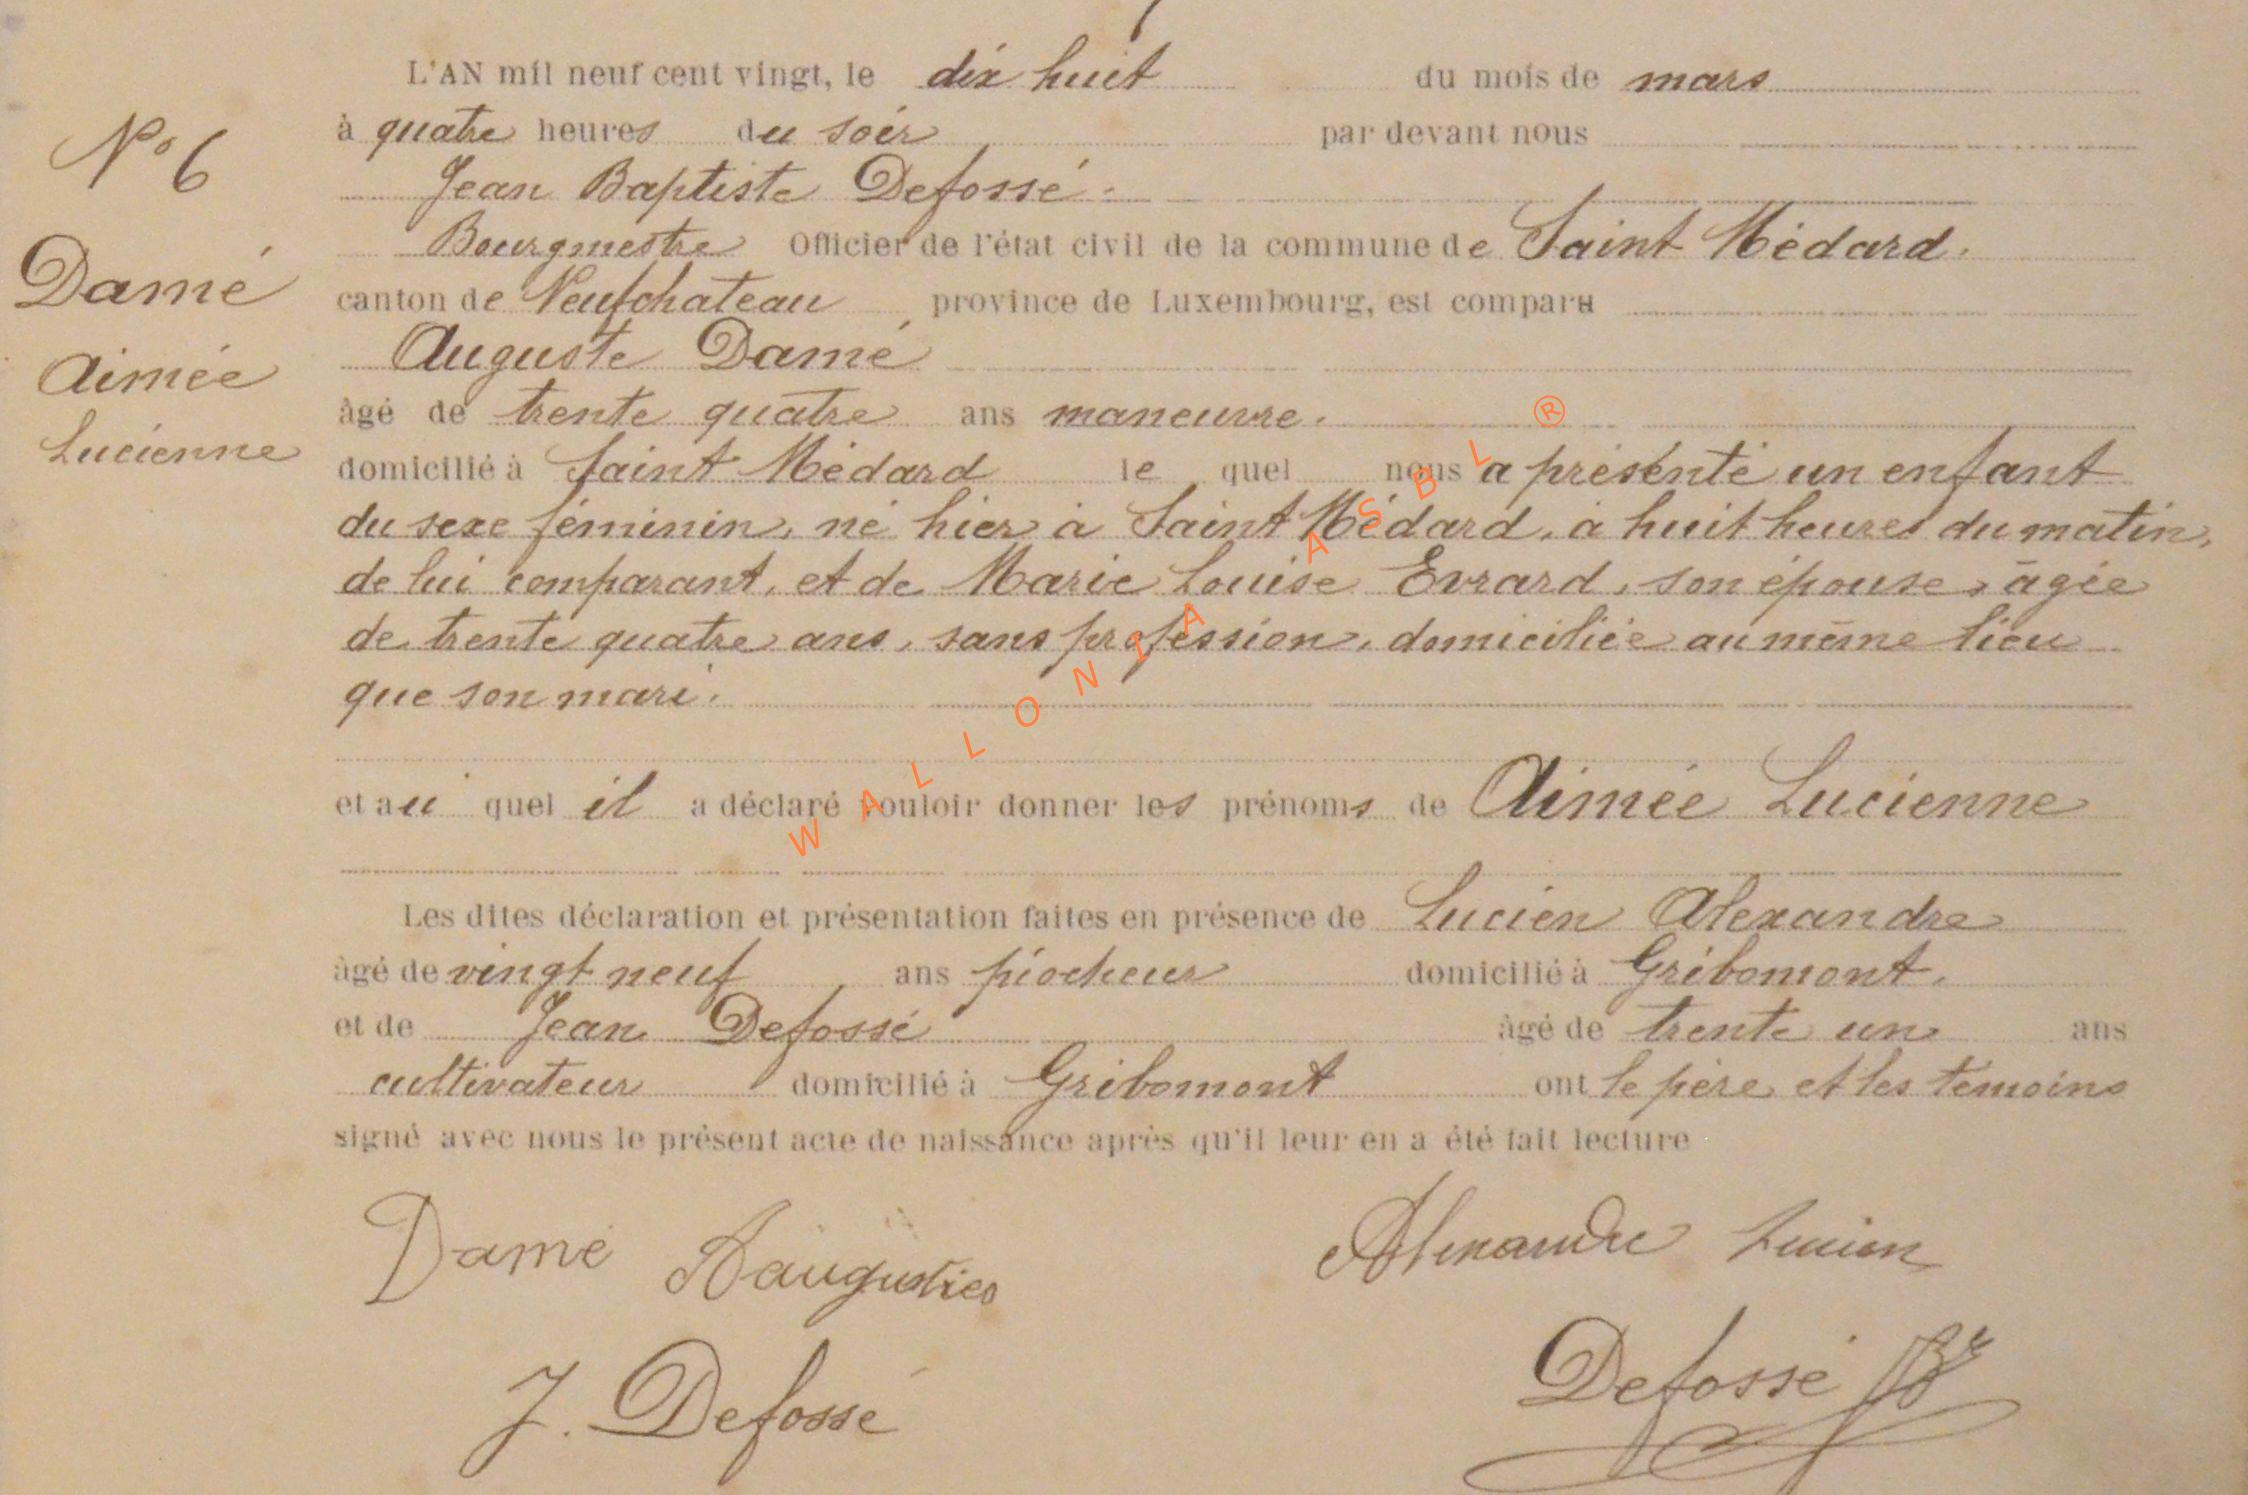 L'AN mil neuf cent vingt, le dix huit du mois de mars
à quatre heures du soir par devant nous
Jean Baptiste Defossé.
Bourgmestre Officier de l'état civil de la commune de Saint Médard.
canton de Neufchateau province de Luxembourg, est comparu
Auguste Damé
âgé de trente quatre ans maneuvre.
domicilié à Saint Médard le quel nous a présenté un enfant
du sexe féminin, né hier à Saint Médard, à huit heures du matin,
de lui comparant, et de Marie Louise Evrard, son épouse, âgée
de trente quatre ans, sans profession, domiciliée au même lieu
que son mari.
et au quel il a déclaré vouloir donner les prénoms de Aimée Lucienne
Les dites déclaration et présentation faites en présence de Lucien Alexandre
âgé de vingt neuf ans piocheur domicilié à Gribomont.
et de Jean Defossé âgé de trente un ans
cultivateur domicilié à Gribomont ont le père et les témoins
signé avec nous le présent acte de naissance après qu'il leur en a été fait lecture
N° 6
Damé
Aimée
Lucienne
Damé Alexandre Lucien
J. Defossé Defossé
WALLONIA ASBL ®